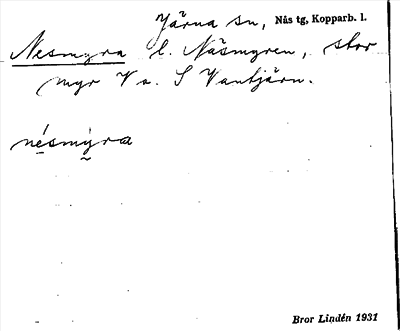 Järna sn, Nås tg, Kopparb. l.
Nesmyra l. Näsmyren, stor
myr V o. S Vantjärn.
nésmỳra
Bror Lindén 1931